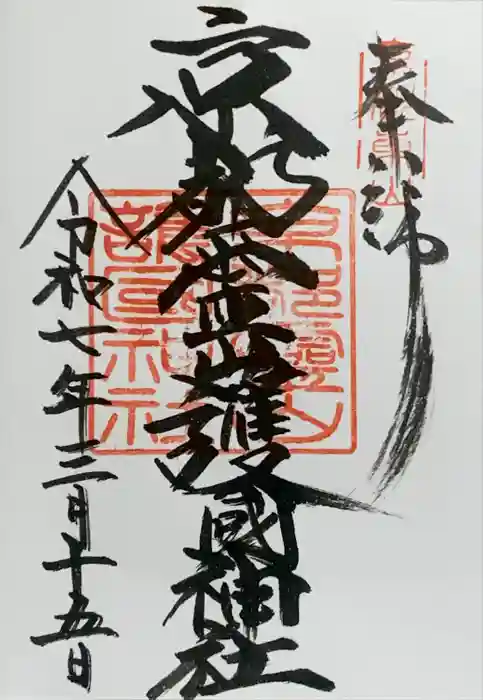 奉拝
京都霊山護國神社
令和七年三月十五日